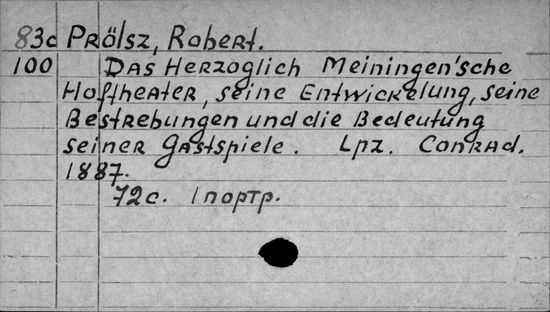 83c Prölsz, Robert.
100 Das Herzoglich Meiningen'sche
Hoftheater, seine Entwickelung, seine
Bestrebungen und die Bedeutung
seiner Gastspiele. Lpz. Conrad.
1887.
72с. 1 портр.